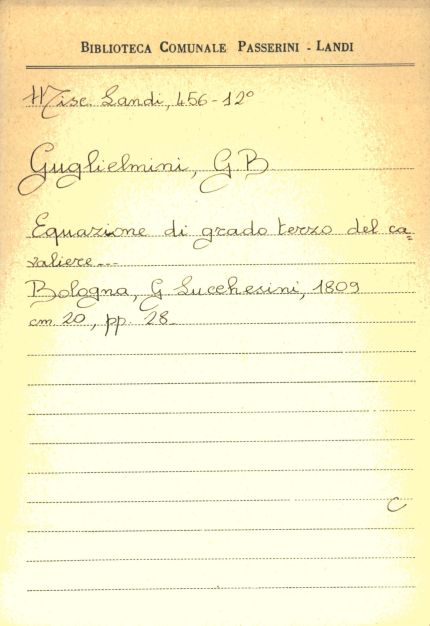 BIBLIOTECA COMUNALE PASSERINI - LANDI
Misc. Landi, 456-12°
Guglielmini, G.B.
Equazione di grado terzo del ca=
valiere...
Bologna, G. Lucchesini, 1809
cm 20, pp. 28.
C